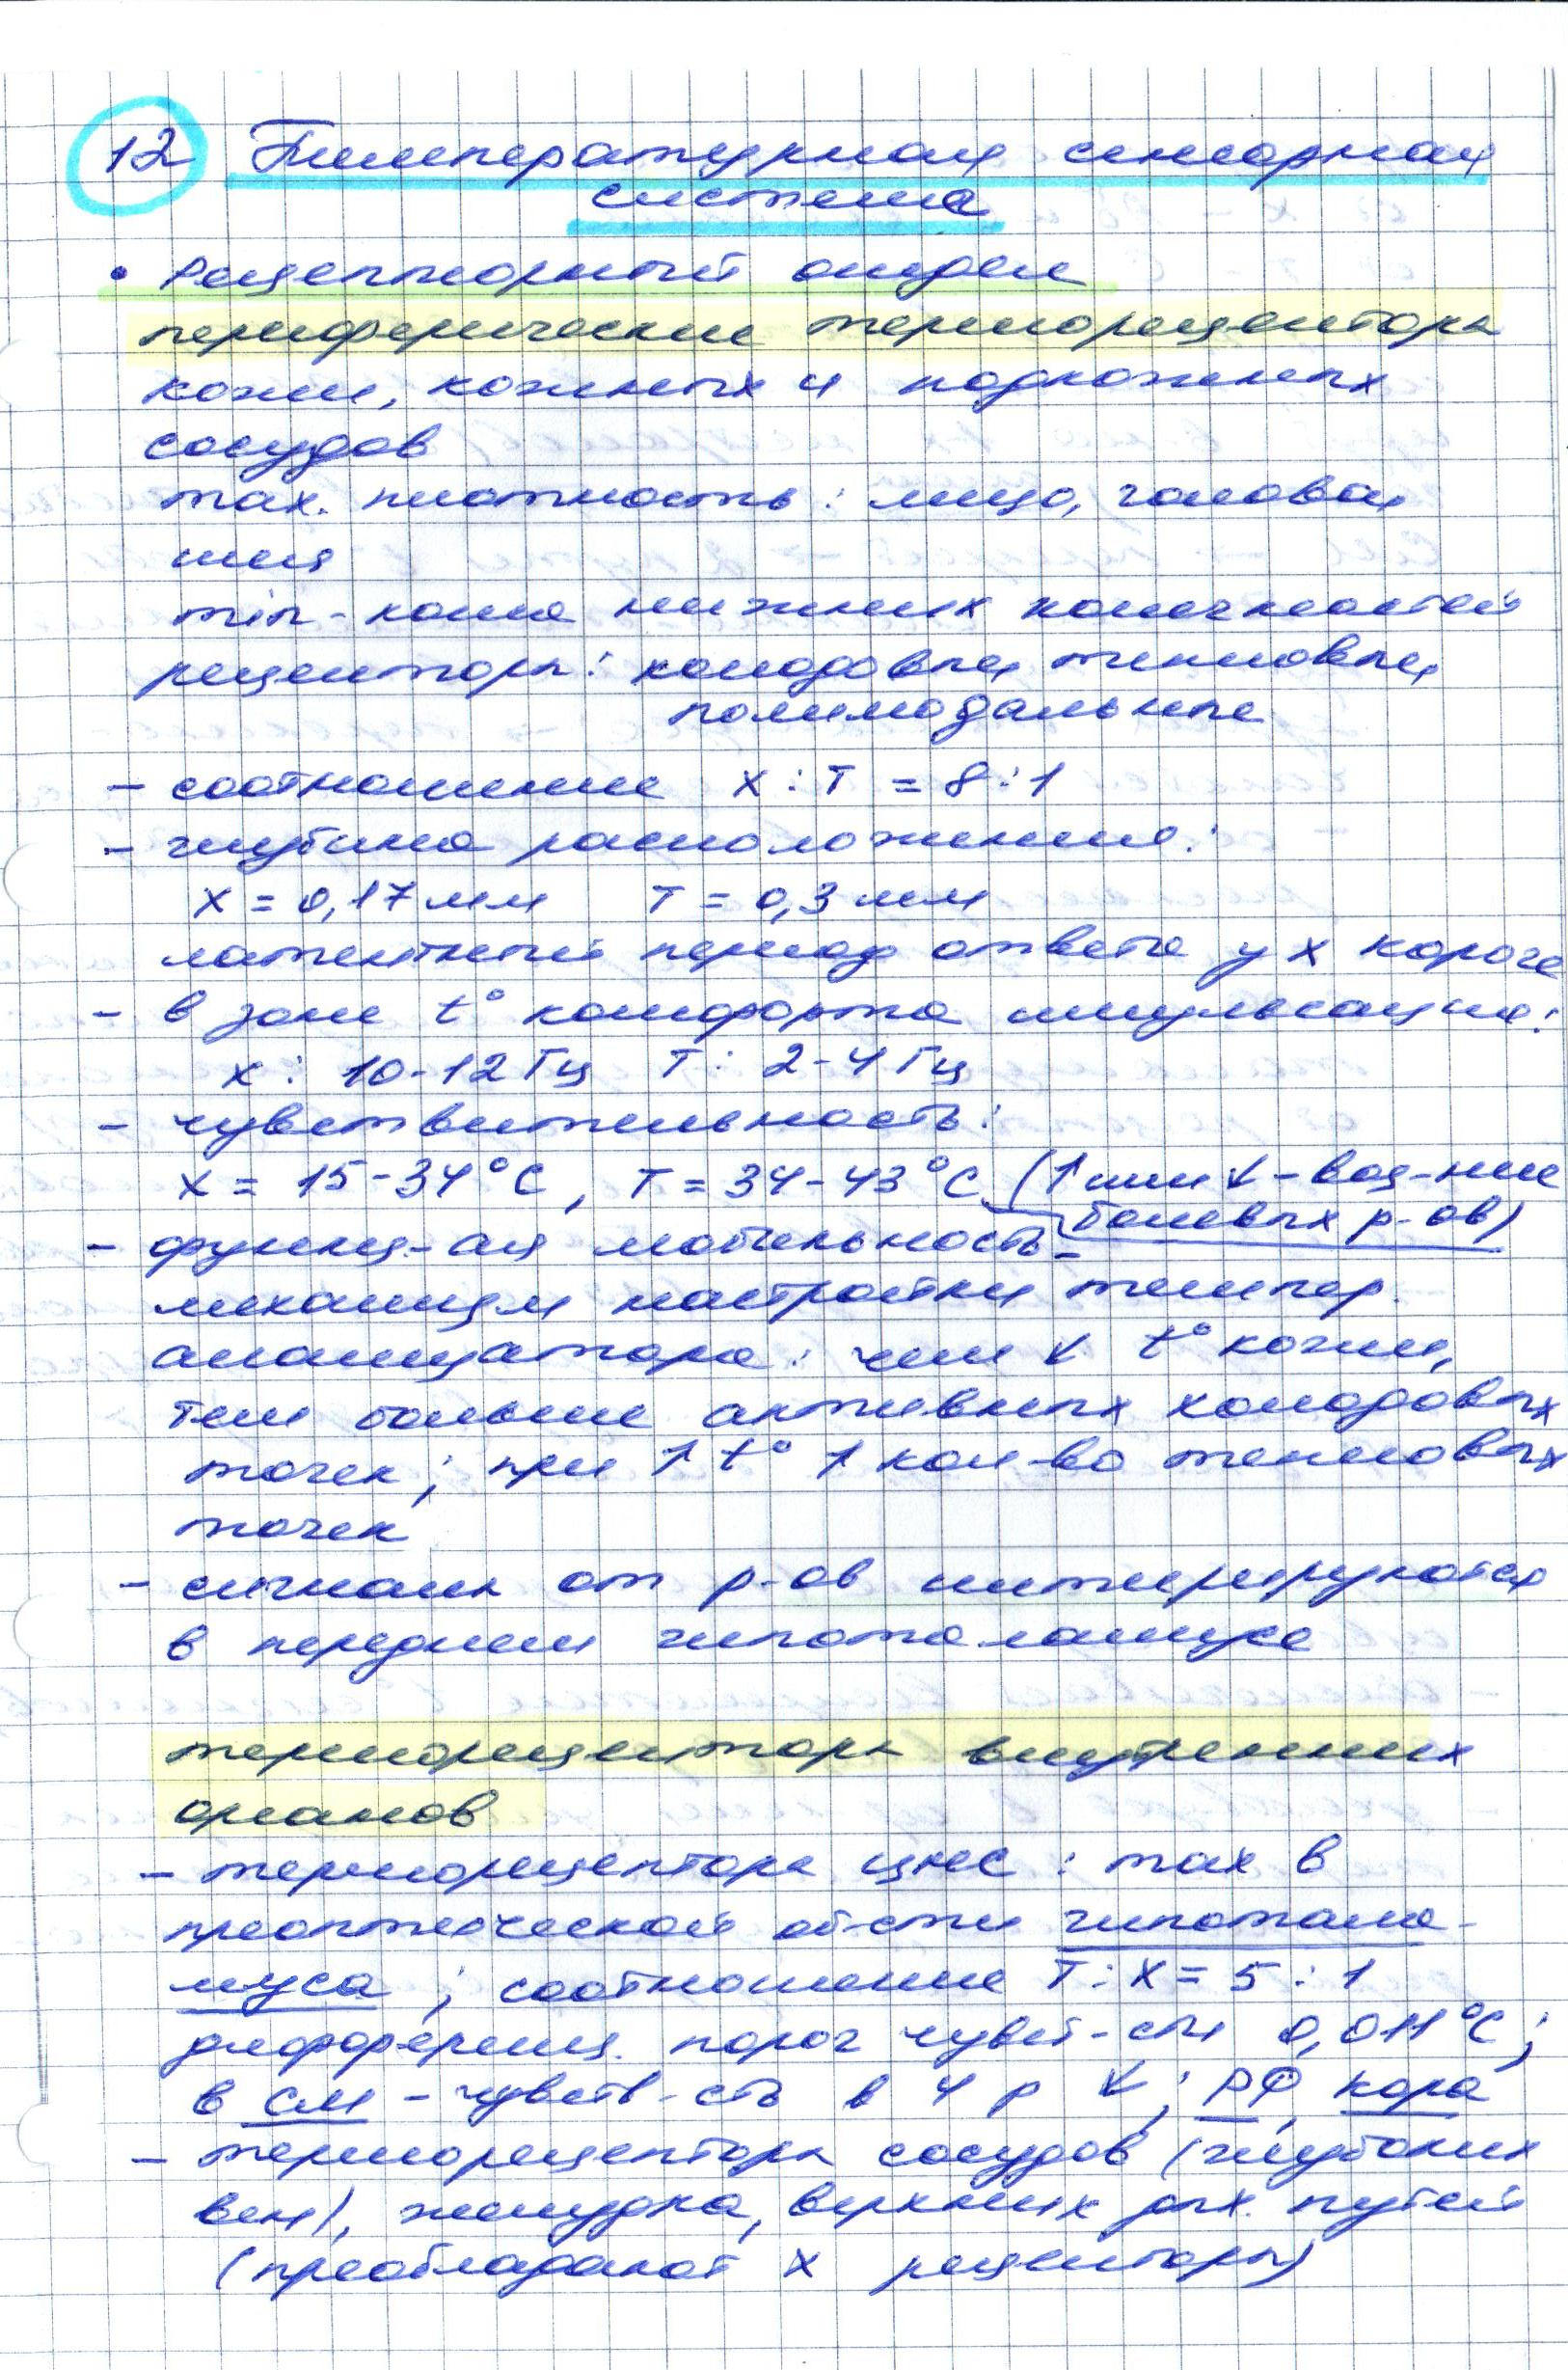 12 Температурная сенсорная
система
• Рецепторный отдел
периферические терморецепторы
кожи, кожных и подкожных
сосудов
max. плотность: лицо, голова,
шея
min - кожа нижних конечностей
рецепторы: холодовые, тепловые,
полимодальные
- соотношение Х : Т = 8 : 1
- глубина расположения:
Х = 0,17 мм Т = 0,3 мм
латентный период ответа у Х короче
- в зоне t° комфорта импульсация:
Х: 10-12 Гц Т: 2-4 Гц
- чувствительность:
Х = 15-34°С, Т = 34-43°С (↑ или ↓ - воз-ние
болевых р-ов)
- функц-ая мобильность -
механизм настройки темпер.
анализатора: чем ↓ t° кожи,
тем больше активных холодовых
точек; при ↑ t° ↑ кол-во тепловых
точек
- сигналы от р-ов интегрируются
в переднем гипоталамусе
терморецепторы внутренних
органов
- терморецепторы ЦНС: max в
преоптической об-сти гипотала-
муса; соотношение Т : Х = 5 : 1
дифференц. порог чувст-сти 0,011°С;
в СМ - чувств-сть в 4 р ↓; РФ, кора
- терморецепторы сосудов (глубоких
вен), желудка, верхних дых. путей
(преобладают Х рецепторы)